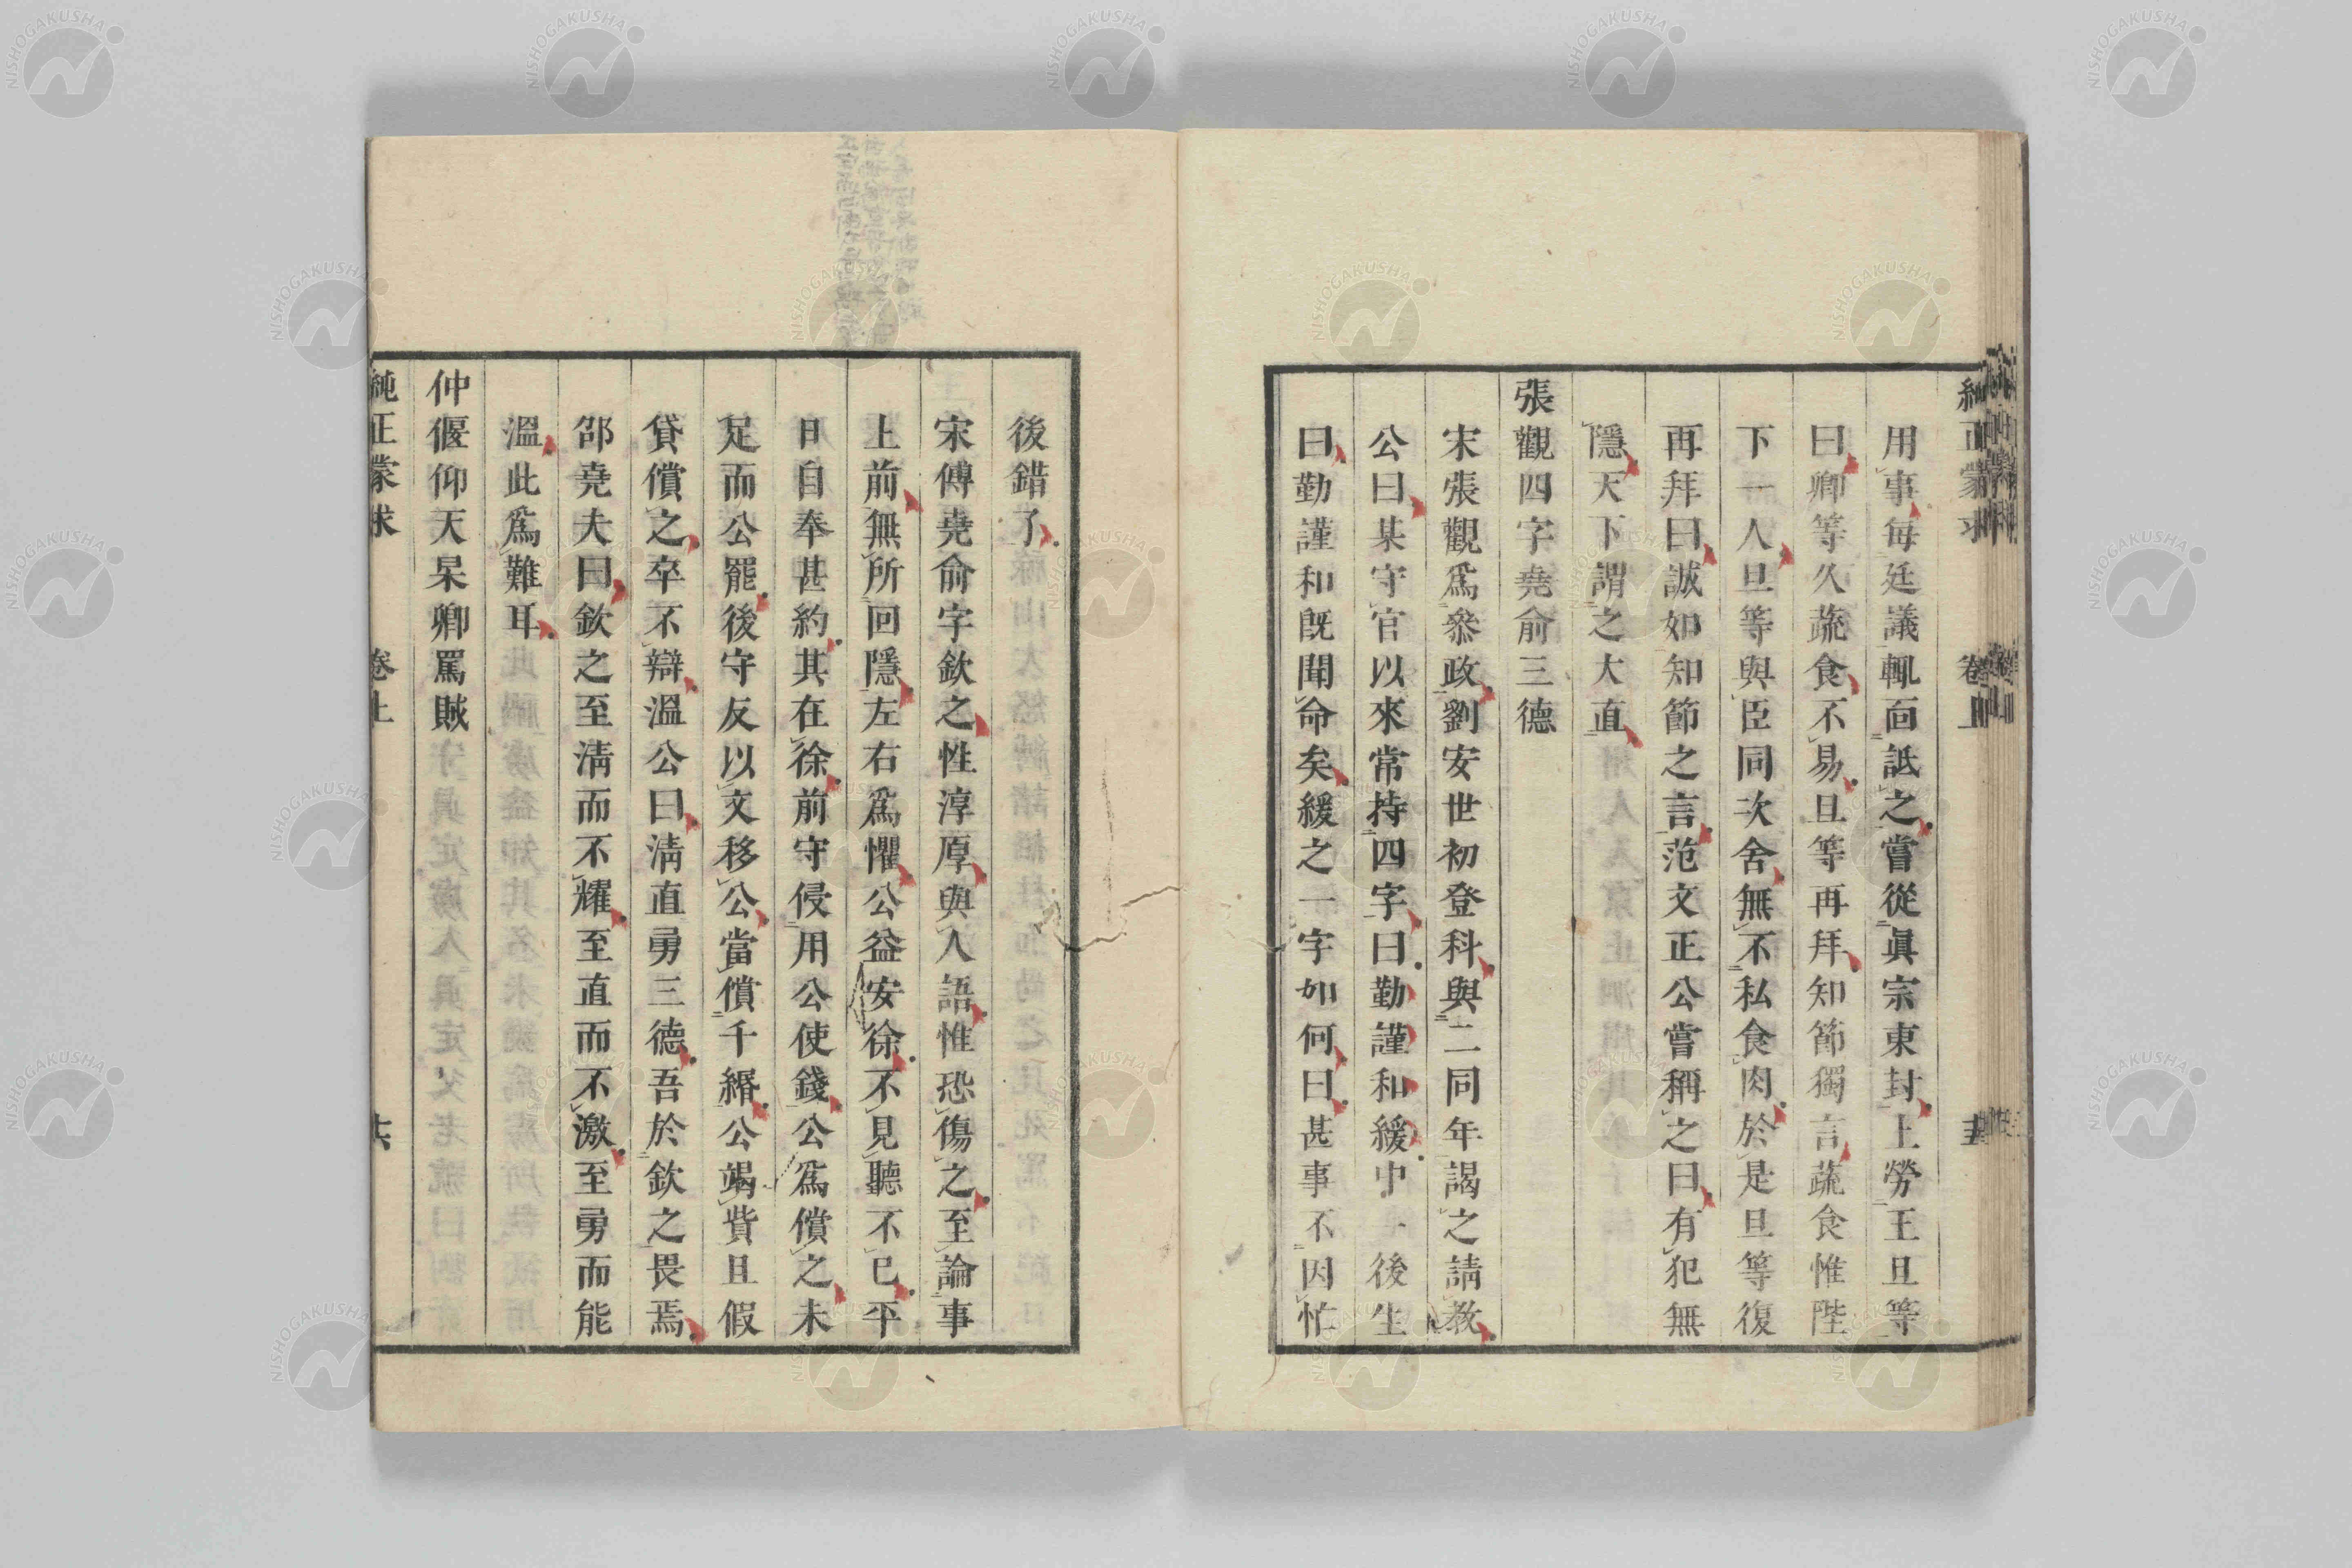 純正蒙求 卷上
用事每廷議輒面詆之嘗從眞宗東封上勞王旦等
曰卿等久蔬食不易旦等再拜知節獨言蔬食惟陛
下一人旦等與臣同次舍無不私食肉於是旦等復
再拜曰誠如知節之言范文正公嘗稱之曰有犯無
隱天下謂之大直
張觀四字堯俞三德
宋張觀爲參政劉安世初登科與二同年謁之請教
公曰某守官以來常持四字曰勤謹和緩中一後生
曰勤謹和旣聞命矣緩之一字如何曰甚事不因忙
後錯了
宋傅堯俞字欽之性淳厚與人語惟恐傷之至論事
上前無所回隱左右爲懼公益安徐不見聽不已平
日自奉甚約其在徐前守侵用公使錢公爲償之未
足而公罷後守反以文移公當償千緡公竭貲且假
貸償之卒不辯溫公曰淸直勇三德吾於欽之畏焉
邵堯夫曰欽之至淸而不耀至直而不激至勇而能
溫此爲難耳
仲偃仰天杲卿罵賊
純正蒙求 卷上 十六
NISHOGAKUSHA